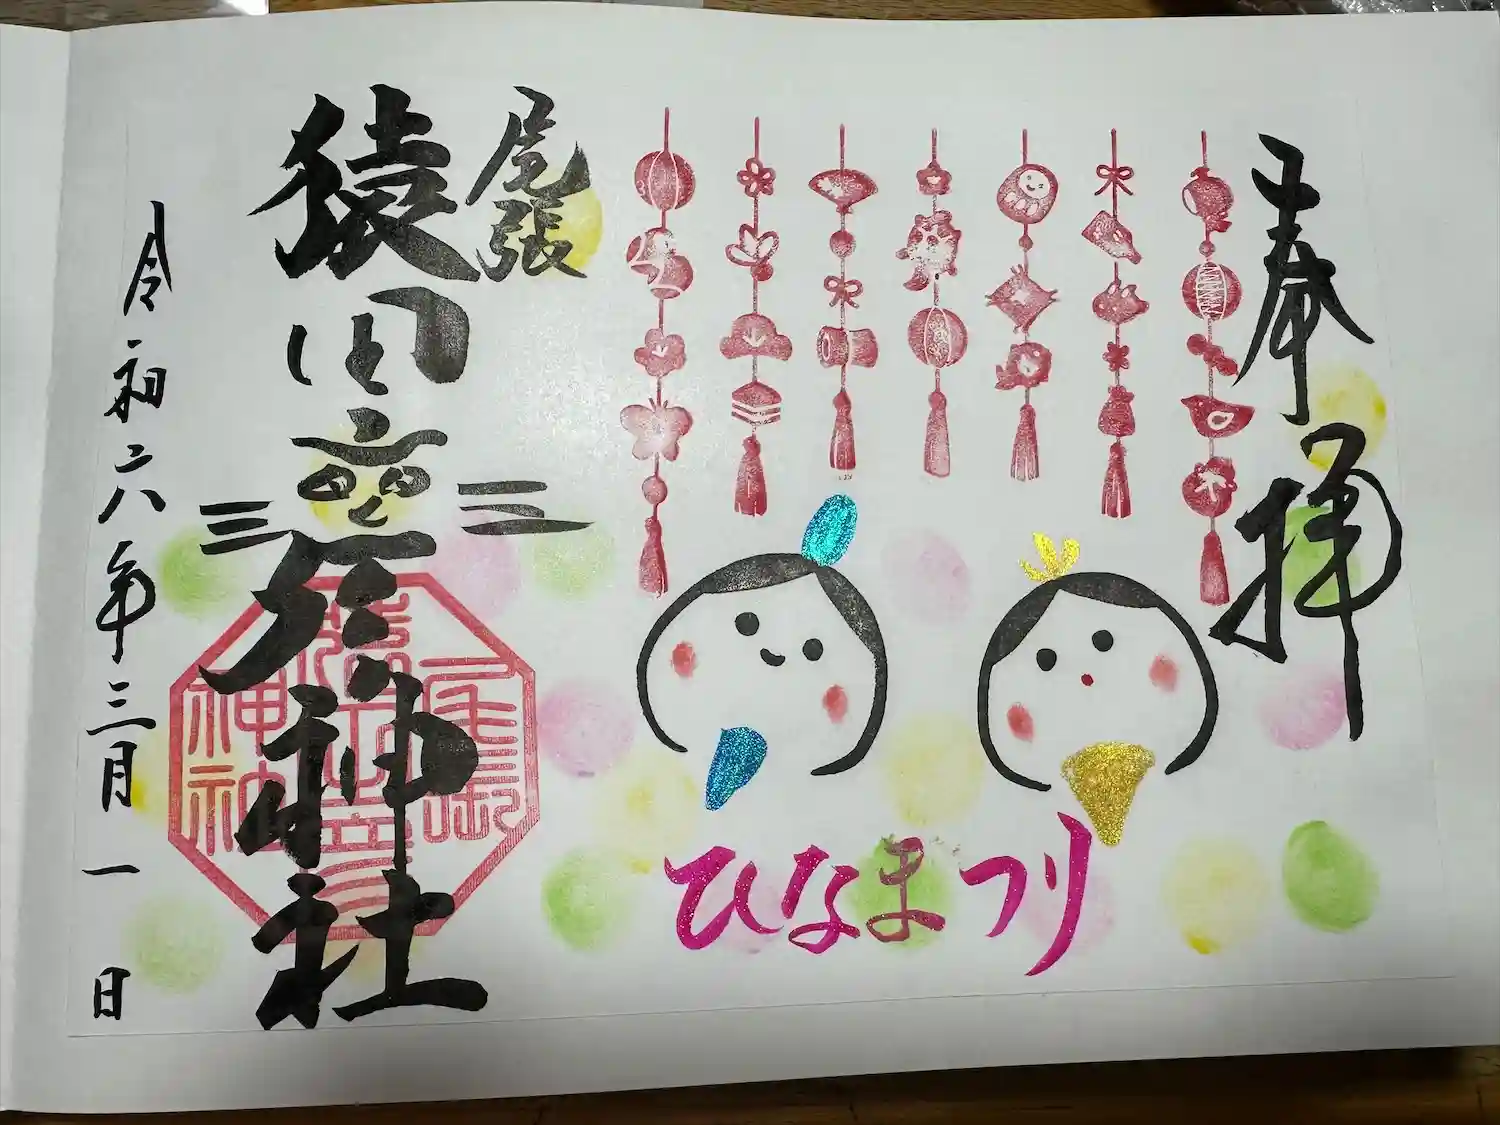 奉拝
ひなまつり
尾張
猿田彦神社
尾張
猿田彦
神社
令和六年三月一日